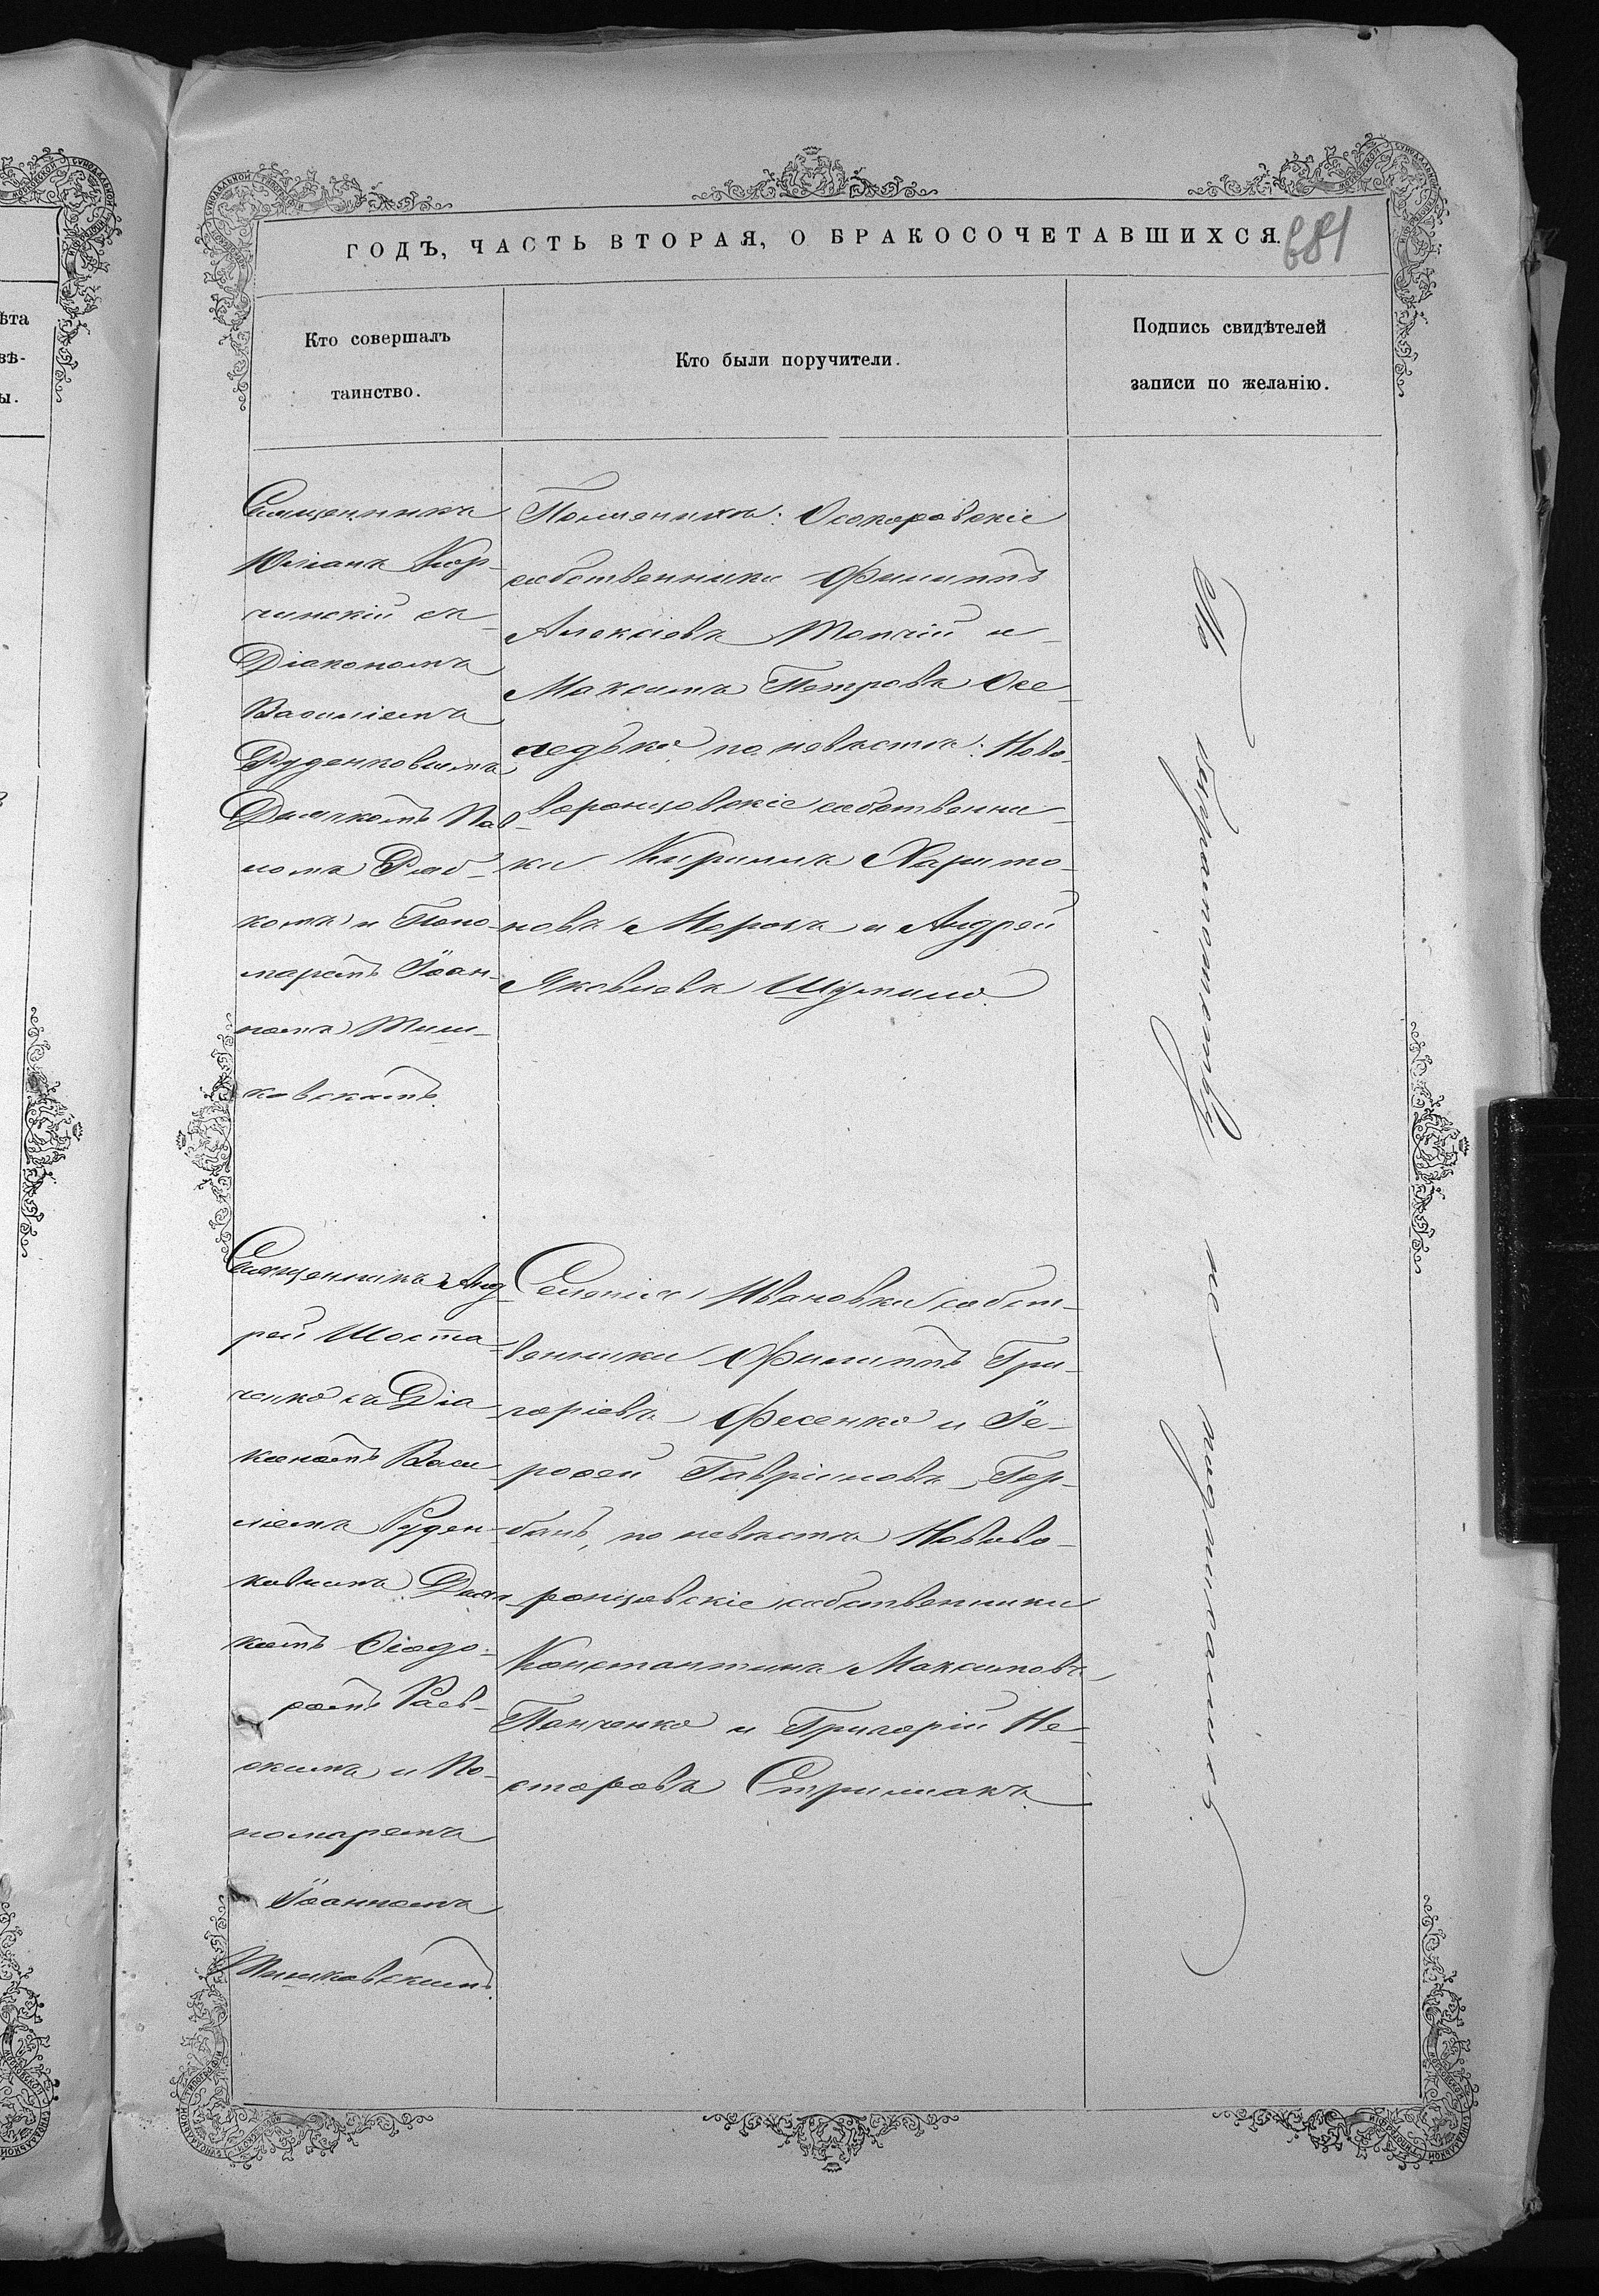 ГОДЪ, ЧАСТЬ ВТОРАЯ, О БРАКОСОЧЕТАВШИХСЯ.
681
Кто совершалъ
таинство.
Кто были поручители.
Подпись свидѣтелей
записи по желанію.
Священникъ
Юліанъ Кор-
чинскій съ
Діакономъ
Василіемъ
Руденковымъ
Дьячкомъ Пав-
ломъ Ряб-
комъ и Поно-
маремъ Іоан-
номъ Тиш-
ковскимъ.
По жениху: Осокоровскіе
собственники Филиппъ
Алексіевъ Топчій и
Максимъ Петровъ Осе-
ледько, по невѣстѣ: Ново-
воронцовскіе собственни-
ки Кириллъ Харито-
новъ Морозъ и Андрей
Яковлевъ Шумило.
Священникъ Анд-
рей Шоста-
ченко съ Діа-
кономъ Васи-
ліемъ Руден-
ковымъ Дьяч-
комъ Ѳеодо-
ромъ Раев-
скимъ и По-
номаремъ
Іоанномъ
Тишковскимъ.
Селенія Ивановки собст-
венники Филиппъ Гри-
горіевъ Фесенко и Іе-
роѳей Гавріиловъ Гор-
бань, по невѣстѣ Нововo-
ронцовскіе собственники
Константинъ Максимовъ
Панченко и Григорій Не-
сторовъ Стришакъ.
По неграмотству не подписались